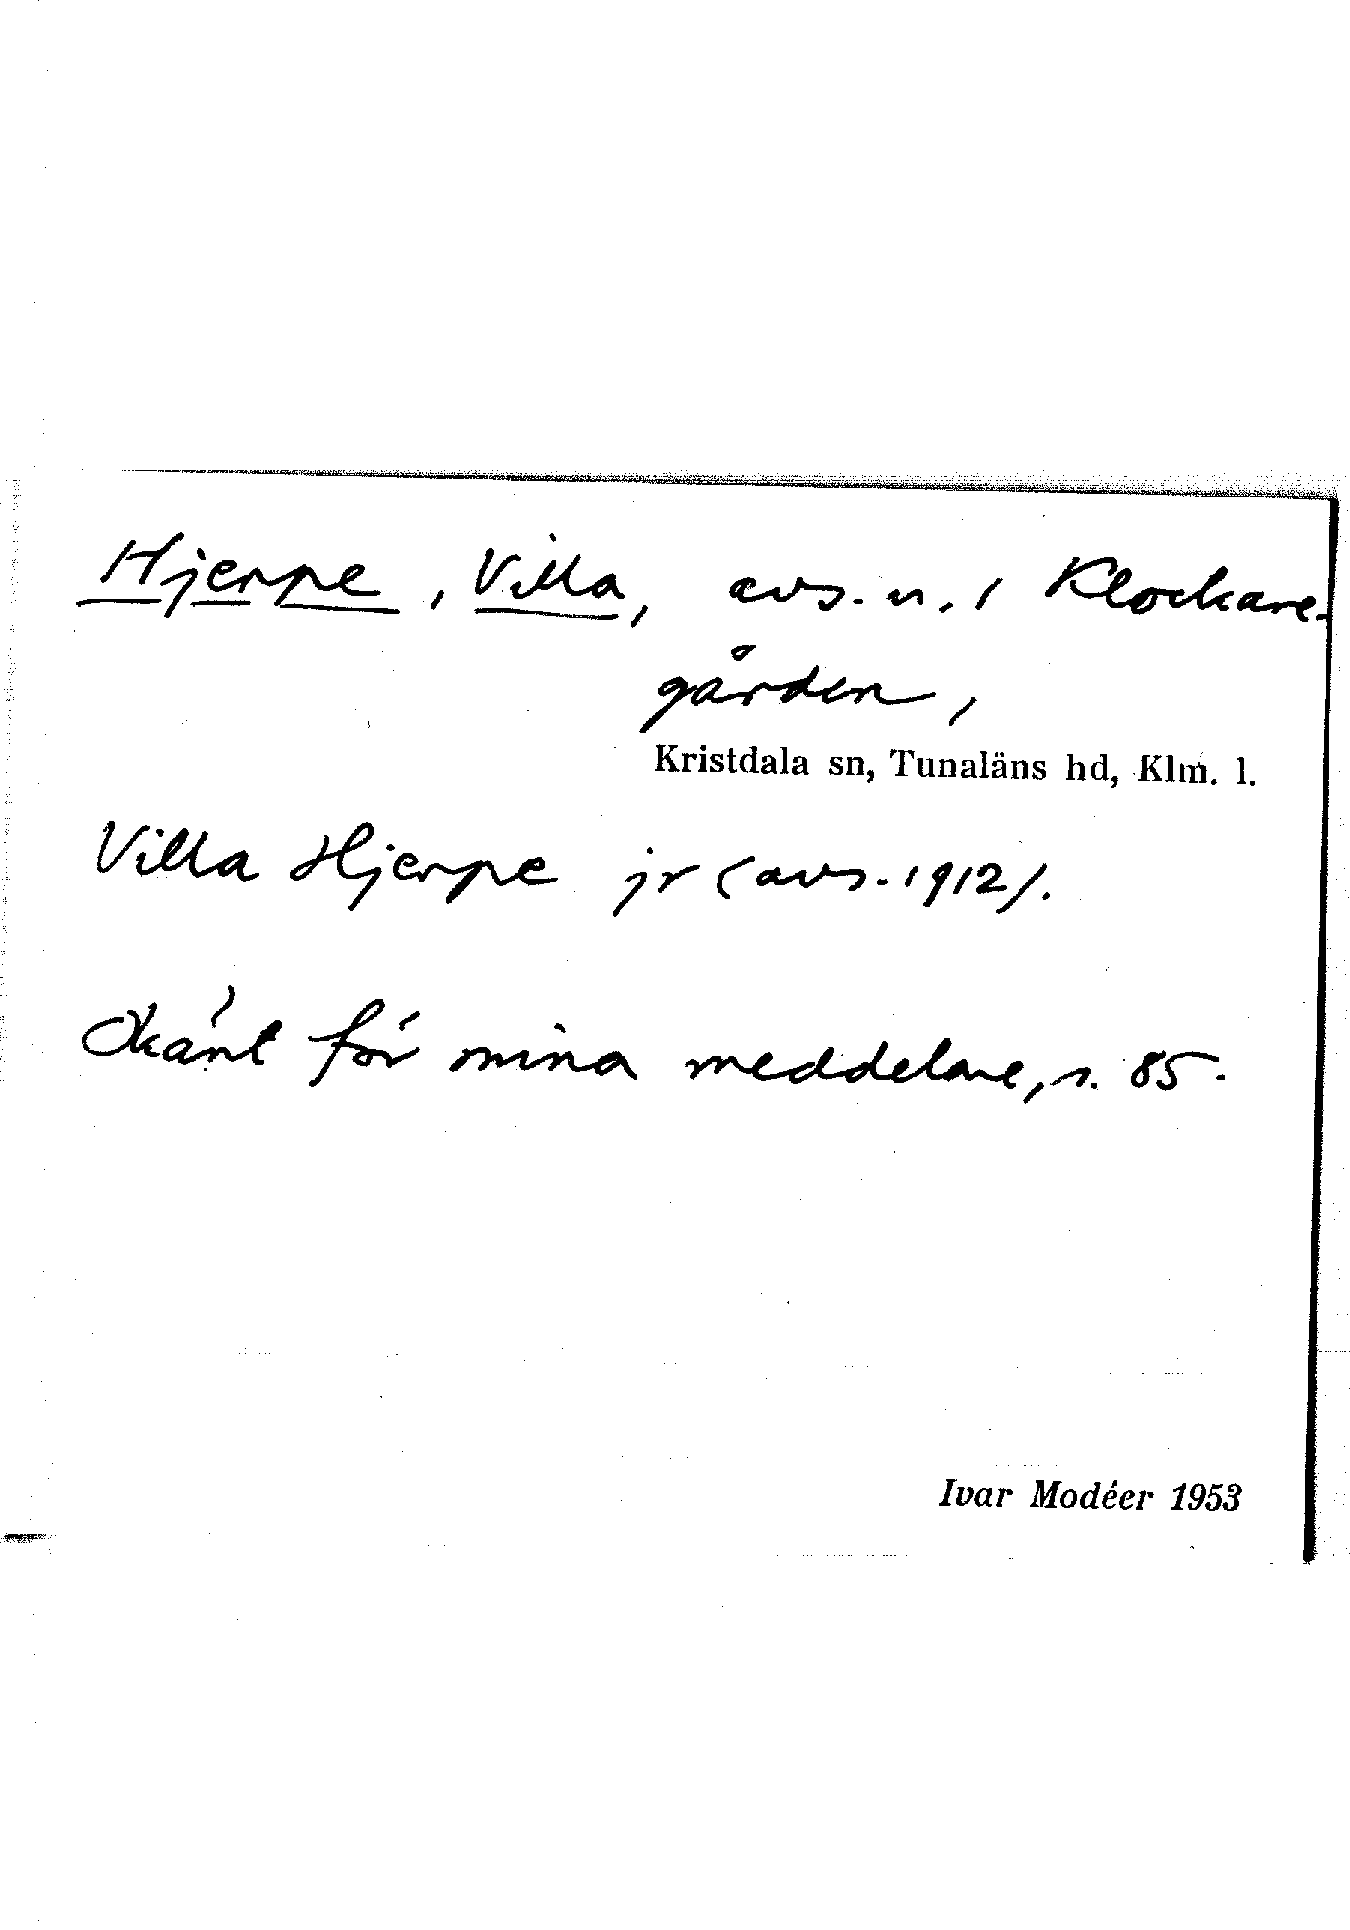 Hjerpe, Villa, avs. u. Klockare-
gården,
Kristdala sn, Tunaläns hd, Klm. l.
Villa Hjerpe jr (avs. 1912).
Okänt för mina meddelare, s. 85.
Ivar Modéer 1953